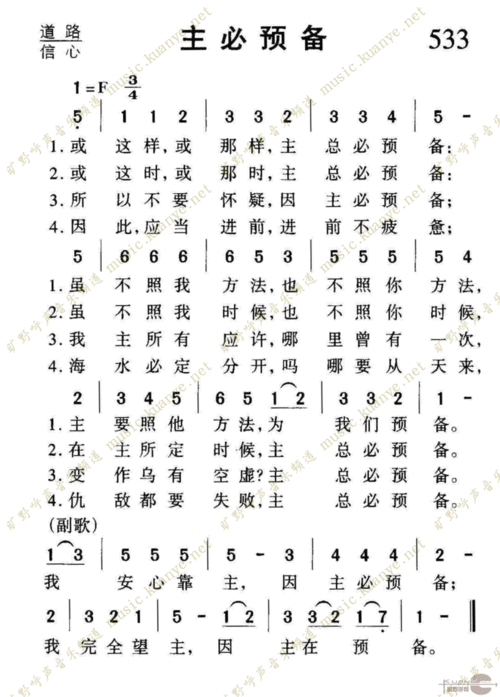 道路
信心
主必预备
533
1=F 3/4
5 | 1 1 2 | 3 3 2 | 3 3 4 | 5 -
1.或 这样,或 那样,主 总必预 备;
2.或 这时,或 那时,主 总必预 备;
3.所 以不要 怀疑,因 主必预 备;
4.因 此,应当 进前,进 前不疲 惫;
5 | 6 6 6 | 6 5 3 | 5 5 5 | 5 4
1.虽 不照我 方法,也 不照你 方法,
2.虽 不照我 时候,也 不照你 时候,
3.我 主所有 应许,哪 里曾有 一次,
4.海 水必定 分开,吗 哪要从 天来,
2 | 3 4 5 | 6 5 1 2 | 3 4 2 | 1 -
1.主 要照他 方法,为 我们预 备。
2.在 主所定 时候,主 总必预 备。
3.变 作乌有 空虚?主 总必预 备。
4.仇 敌都要 失败,主 总必预 备。
(副歌)
1 3 | 5 5 5 | 5 - 3 | 4 4 4 | 3 -
我 安心靠 主, 因 主必预 备;
2 | 3 2 1 | 5 - 1 2 | 3 2 1 7 | 1 -
我 完全望 主, 因 主在 预 备。
旷野吟声音乐频道 music.kuanye.net